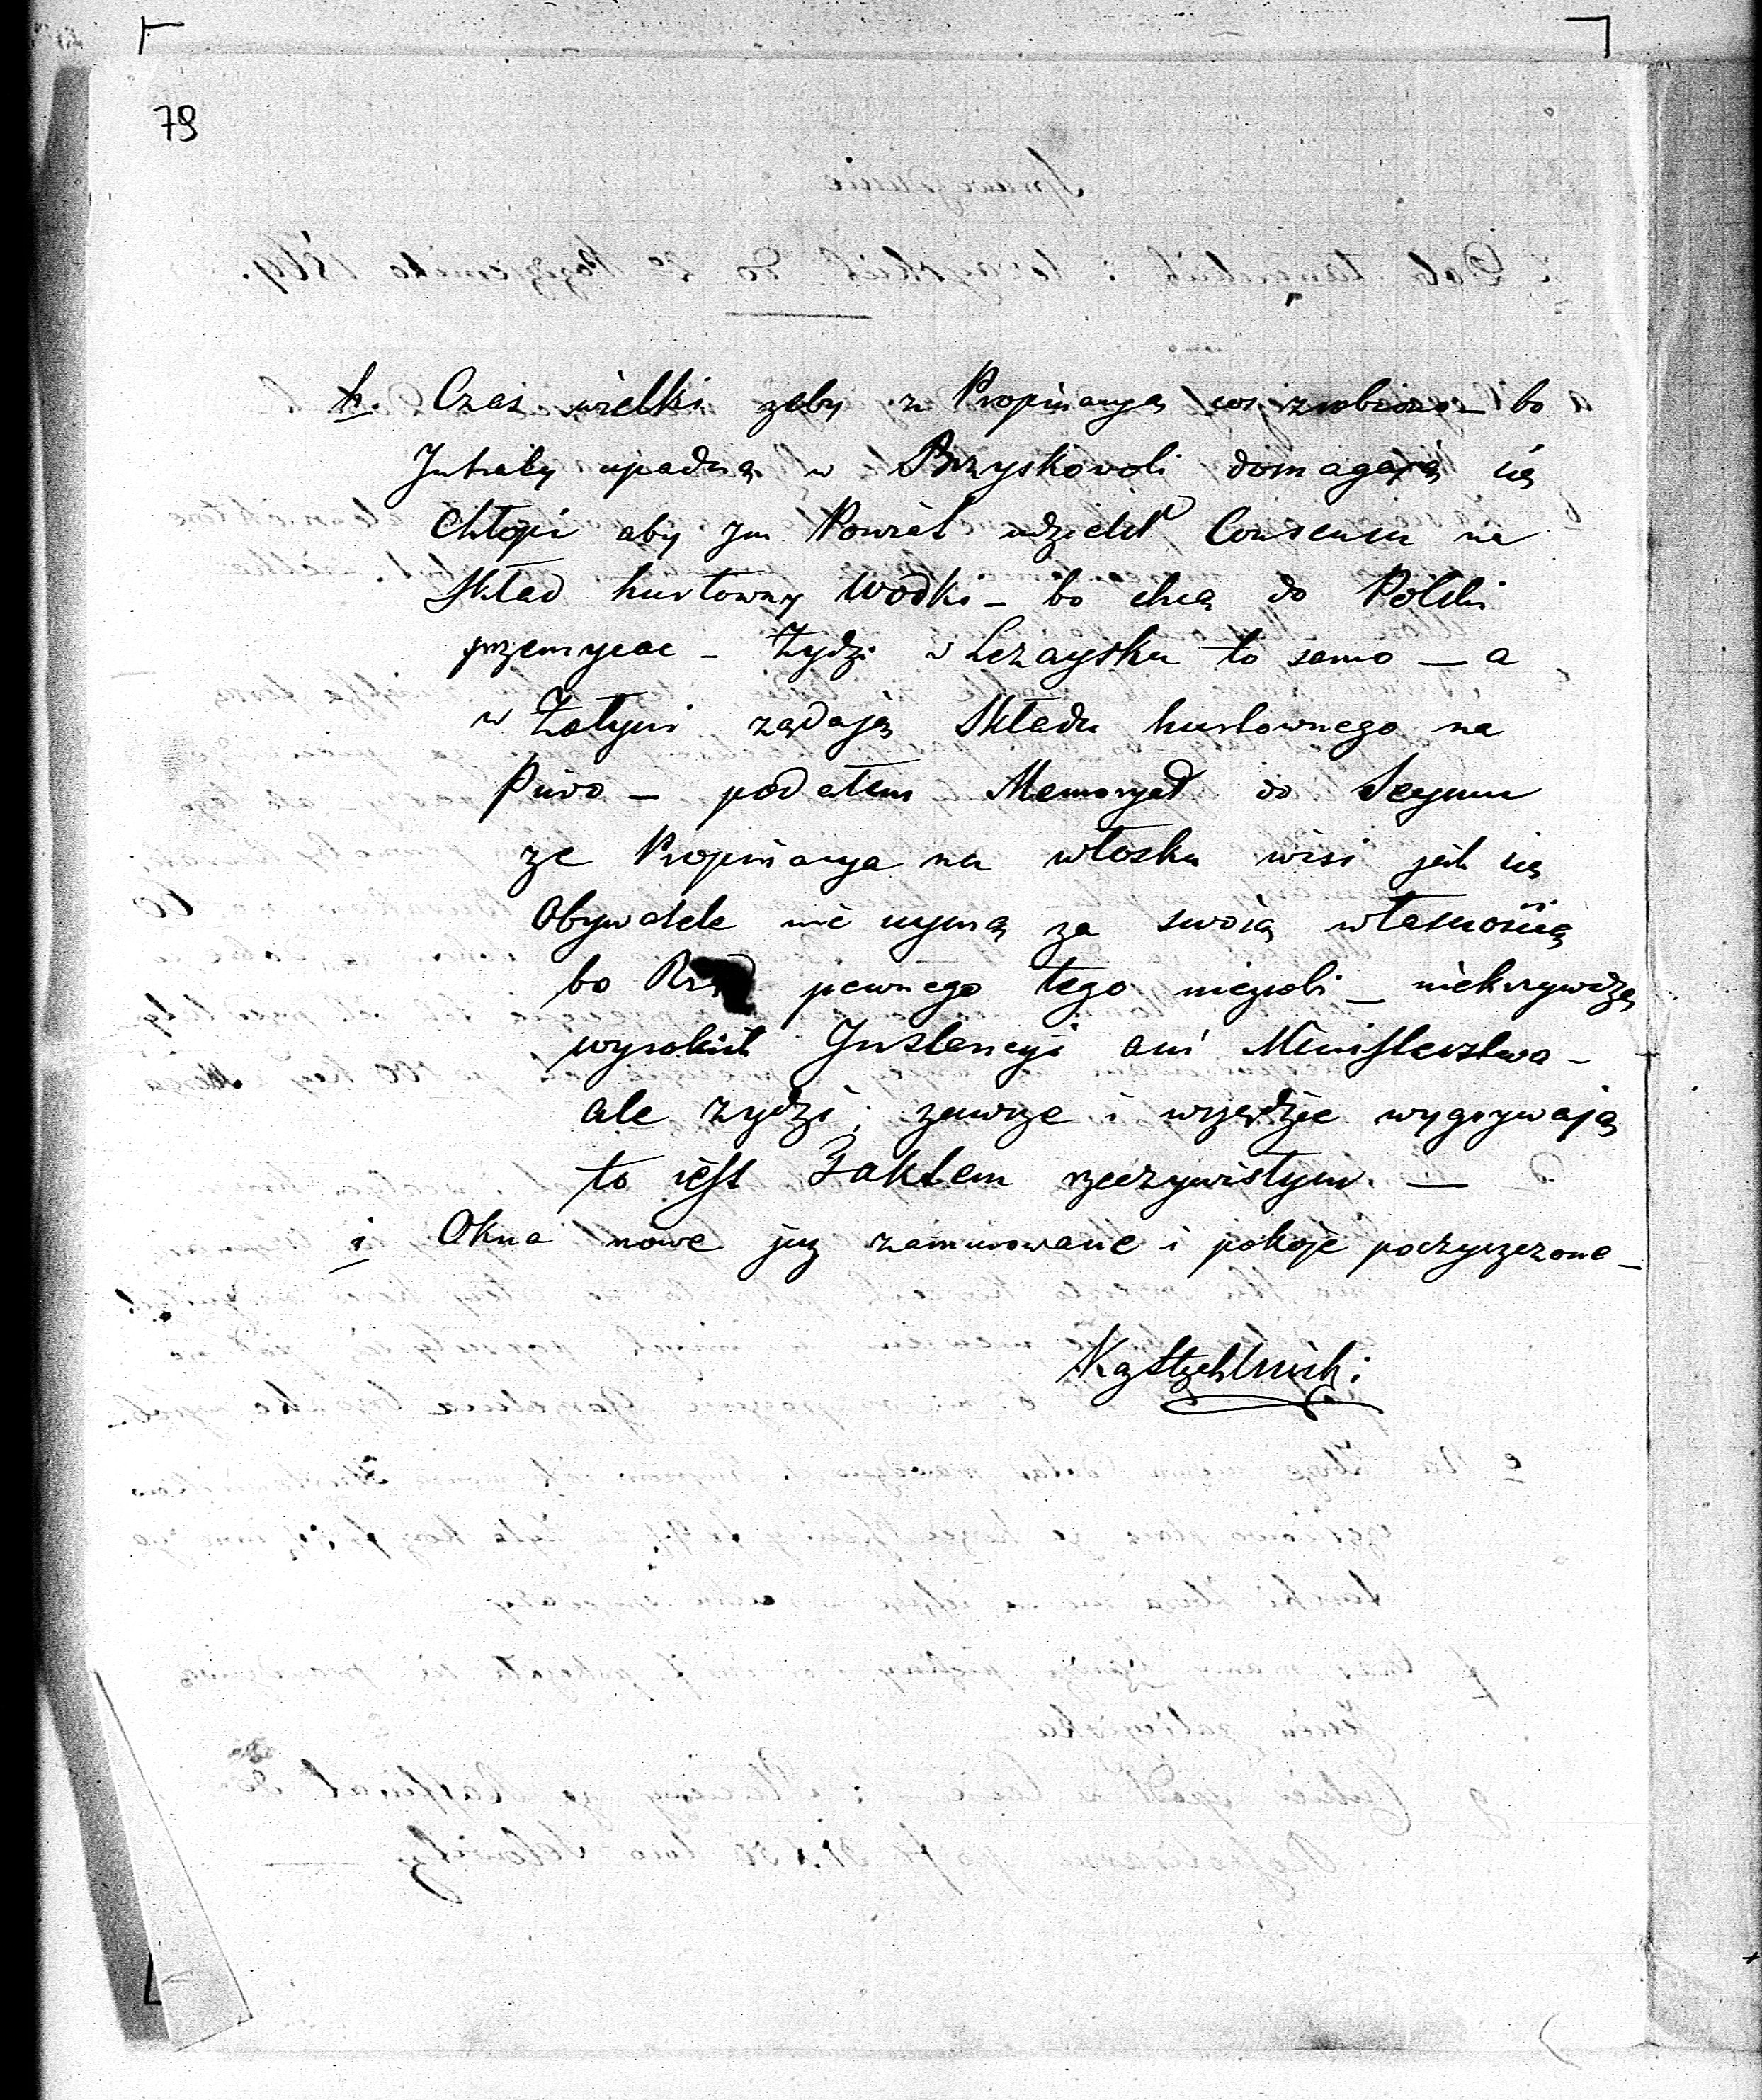 79
h. Czas wielki zeby z Propinacyą coś zrobiono – bo
Intraty upadną w Brzyskowoli domagają się
Chłopi aby Im Powiat udzielił Consensu na
Skład hurtowny Wodki – bo chcą do Polski
przemycac – Żydzi w Lezaysku to samo – a
w Żołyni ządają Składu hurtownego na
Piwo – podałem Memoryał do Seymu
ze Propinacya na włosku wisi jak się
Obywatele nie uymą za swoią własnością
bo Rząd pewnego tego niezrobi – niekrzywdzą
wysokich Instancyi ani Ministerstwa –
ale Zydzi zawsze i wszędzie wygrywają
to iest Faktem rzeczywistym. —
i Okna nowe juz zamurowane i pokoje poczyszczone –